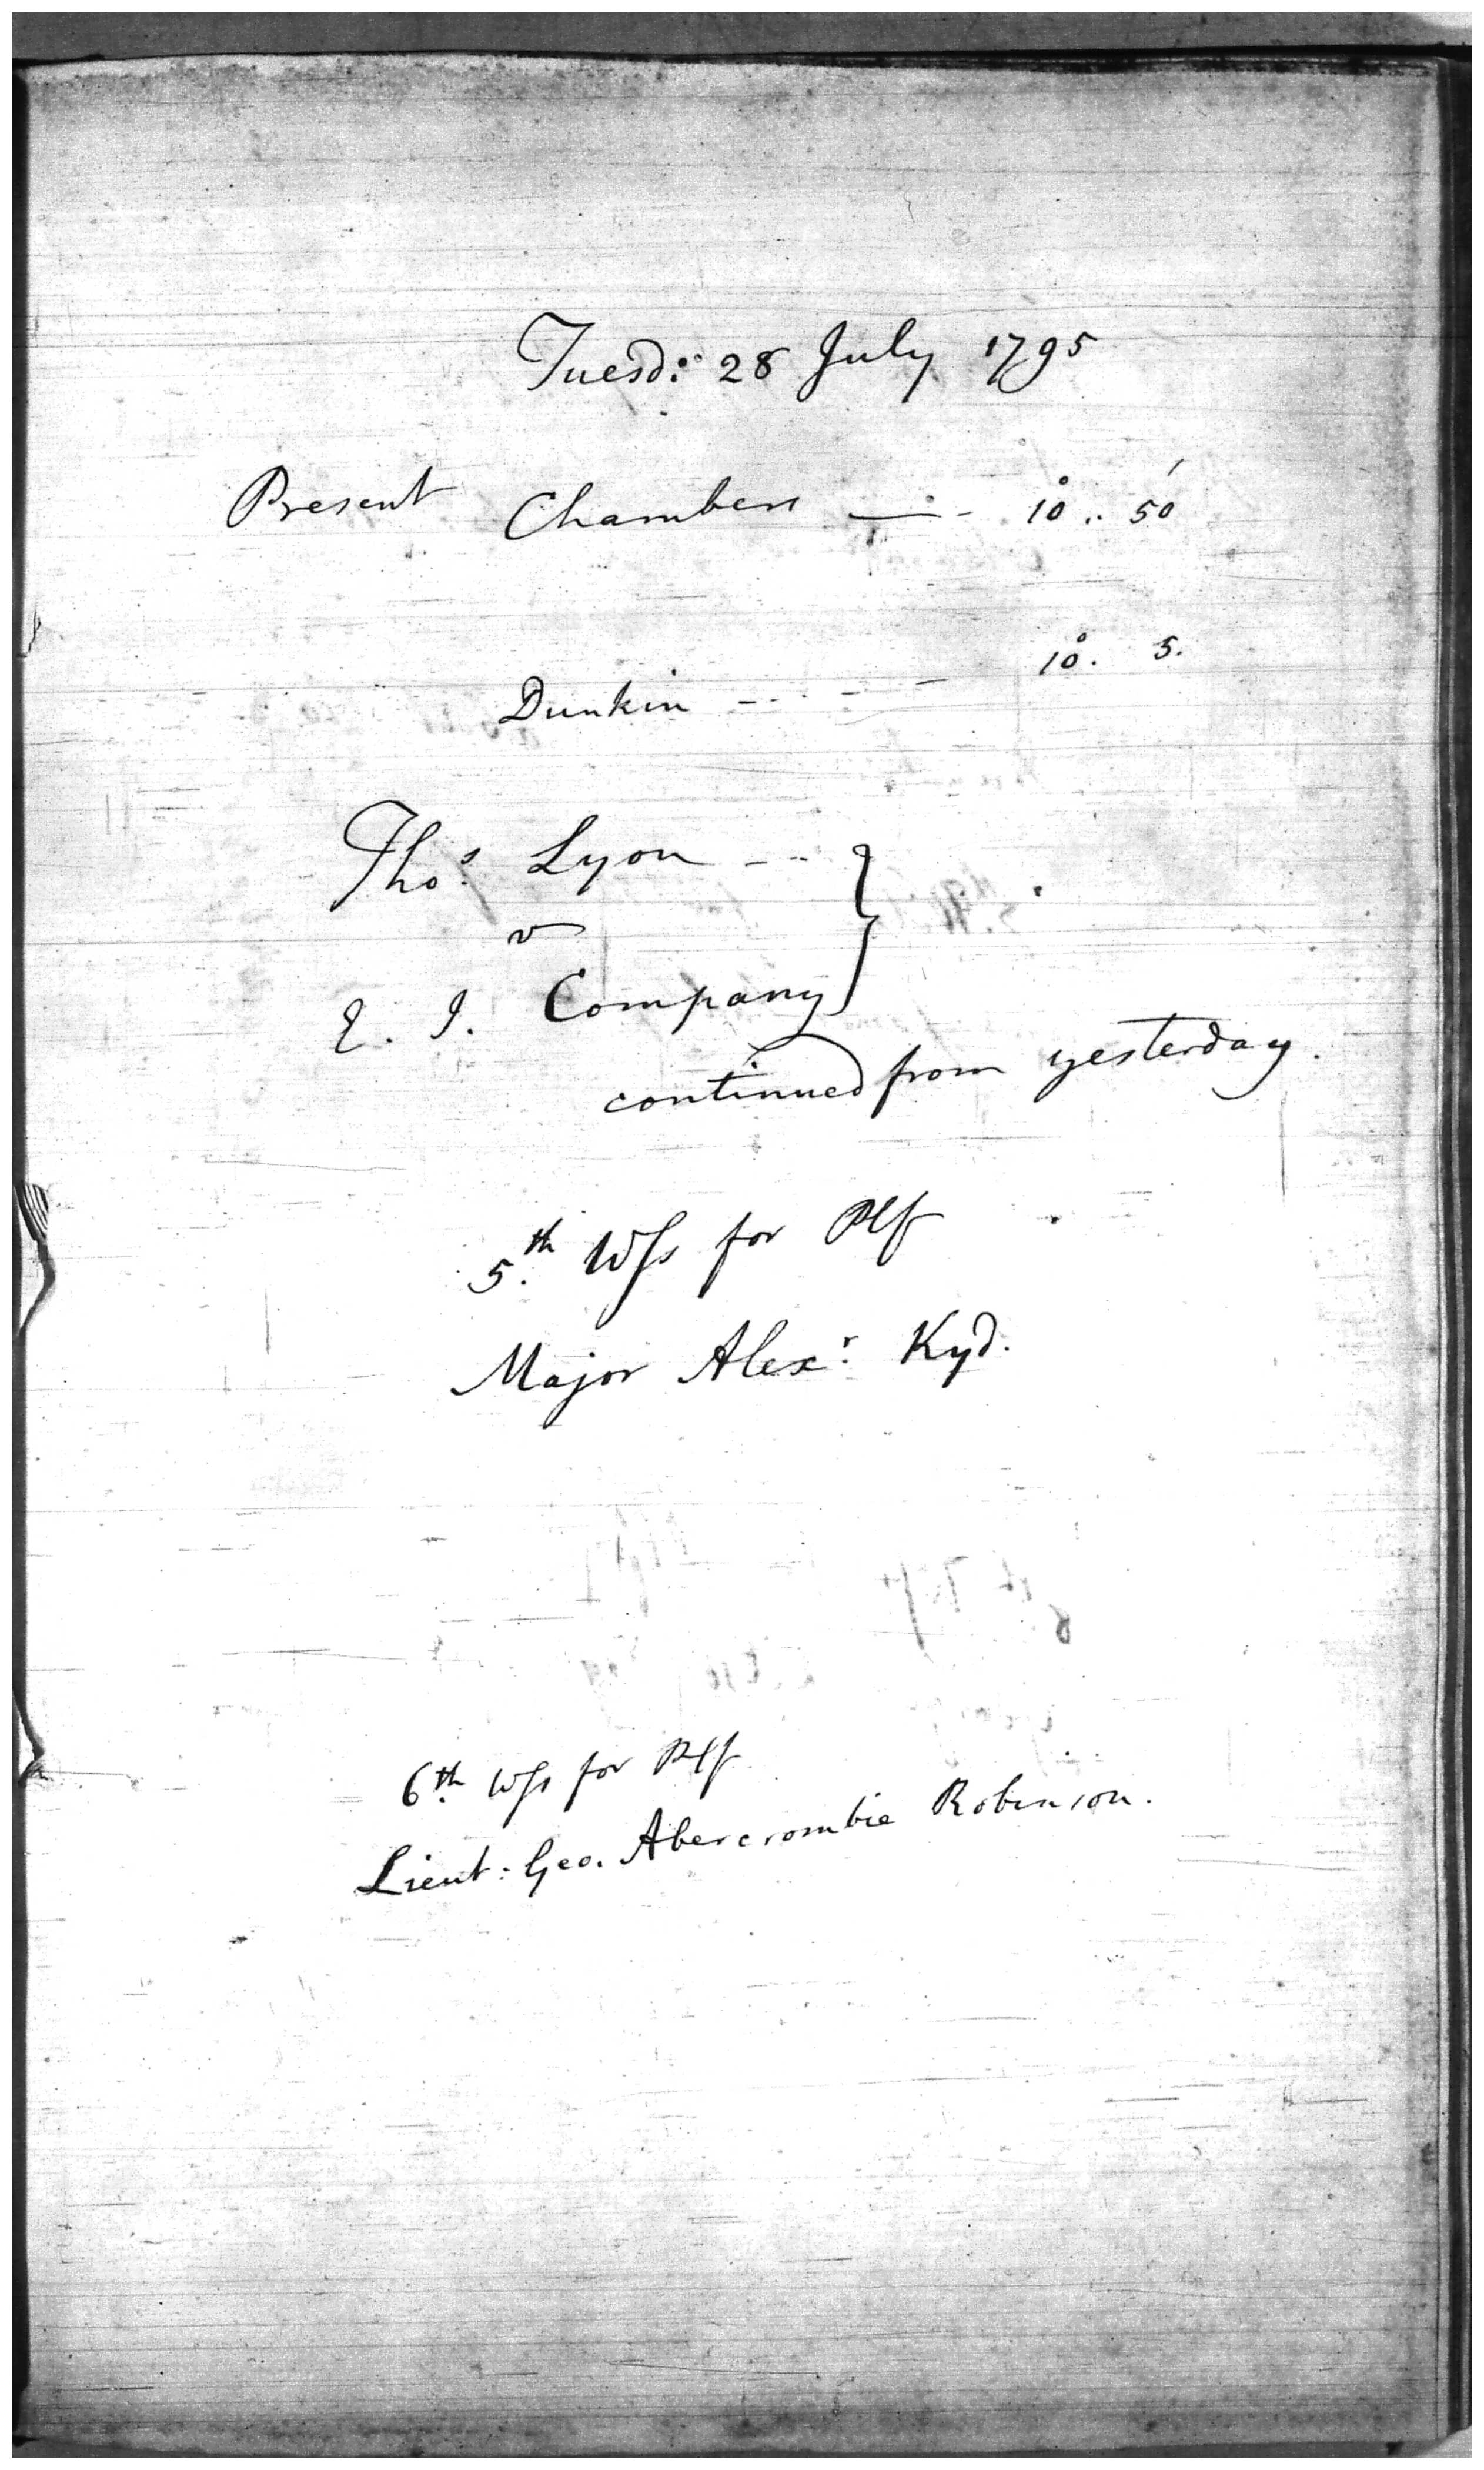 Tuesd: 28 July 1795
Present Chambers —— 10° .. 50'
Dunkin - - - - 10°. 5.
Thos. Lyon - - }
v
E. I. Company
continued from yesterday.
5th. Wss for Plf
Major Alexr. Kyd.
6th. Wss for Plf
Lieut: Geo. Abercrombie Robinson.